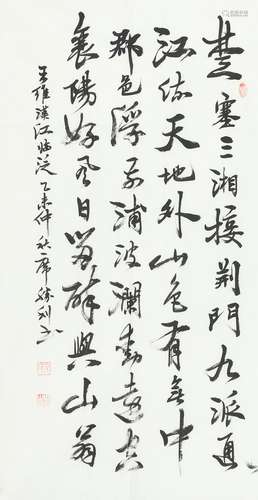 楚塞三湘接荆門九派通
江流天地外山色有無中
郡邑浮前浦波瀾動遠空
襄陽好風日留醉與山翁
王維漢江臨泛乙未仲秋席勝利书